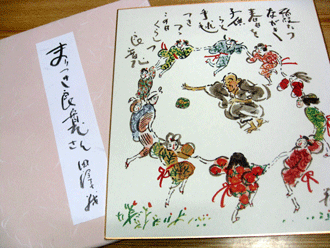 霞立つ
ながき
春日を
子供
らと
手毬
つきつつ
この日
くらしつ
良寛
まりつき良寛さん